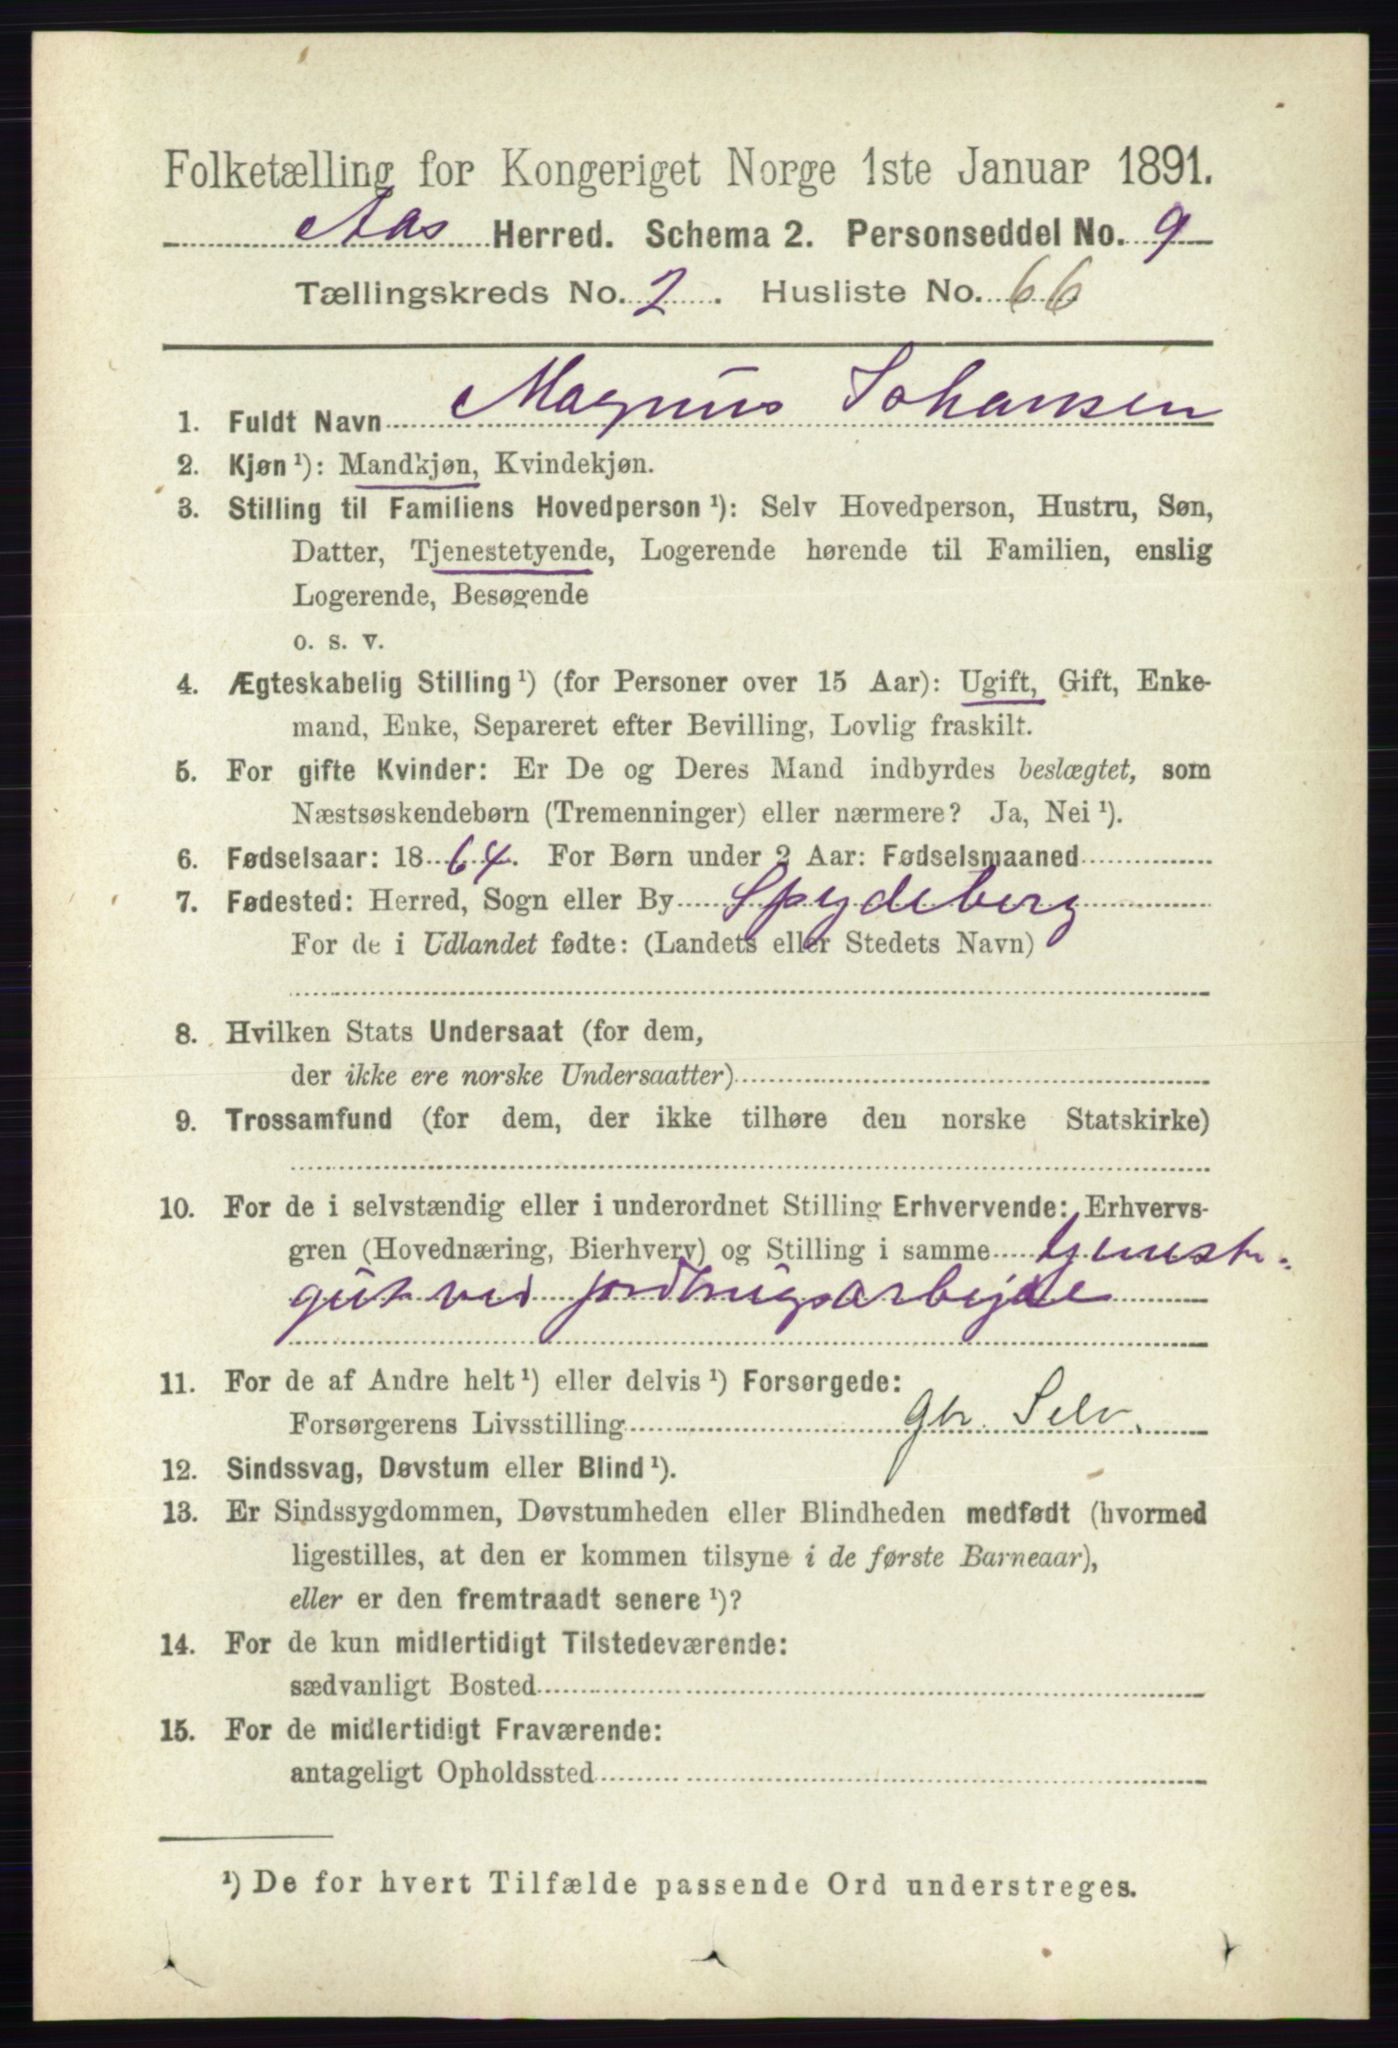 Folketælling for Kongeriget Norge 1ste Januar 1891.
Aas Herred. Schema 2. Personseddel No. 9
Tællingskreds No. 2. Husliste No. 66
1. Fuldt Navn Magnus Johansen
2. Kjøn ¹): Mandkjøn, Kvindekjøn.
3. Stilling til Familiens Hovedperson ¹): Selv Hovedperson, Hustru, Søn,
Datter, Tjenestetyende, Logerende hørende til Familien, enslig
Logerende, Besøgende
o. s. v.
4. Ægteskabelig Stilling ¹) (for Personer over 15 Aar): Ugift, Gift, Enke-
mand, Enke, Separeret efter Bevilling, Lovlig fraskilt.
5. For gifte Kvinder: Er De og Deres Mand indbyrdes beslægtet, som
Næstsøskendebørn (Tremenninger) eller nærmere? Ja, Nei ¹).
6. Fødselsaar: 1864. For Børn under 2 Aar: Fødselsmaaned
7. Fødested: Herred, Sogn eller By Spydeberg
For de i Udlandet fødte: (Landets eller Stedets Navn)
8. Hvilken Stats Undersaat (for dem,
der ikke ere norske Undersaatter)
9. Trossamfund (for dem, der ikke tilhøre den norske Statskirke)
10. For de i selvstændig eller i underordnet Stilling Erhvervende: Erhvervs-
gren (Hovednæring, Bierhverv) og Stilling i samme
gut ved jordbrugsarbejde
11. For de af Andre helt ¹) eller delvis ¹) Forsørgede:
Forsørgerens Livsstilling Gbr. Selv.
12. Sindssvag, Døvstum eller Blind ¹).
13. Er Sindssygdommen, Døvstumheden eller Blindheden medfødt (hvormed
ligestilles, at den er kommen tilsyne i de første Barneaar),
eller er den fremtraadt senere ¹)?
14. For de kun midlertidigt Tilstedeværende:
sædvanligt Bosted
15. For de midlertidigt Fraværende:
antageligt Opholdssted
¹) De for hvert Tilfælde passende Ord understreges.